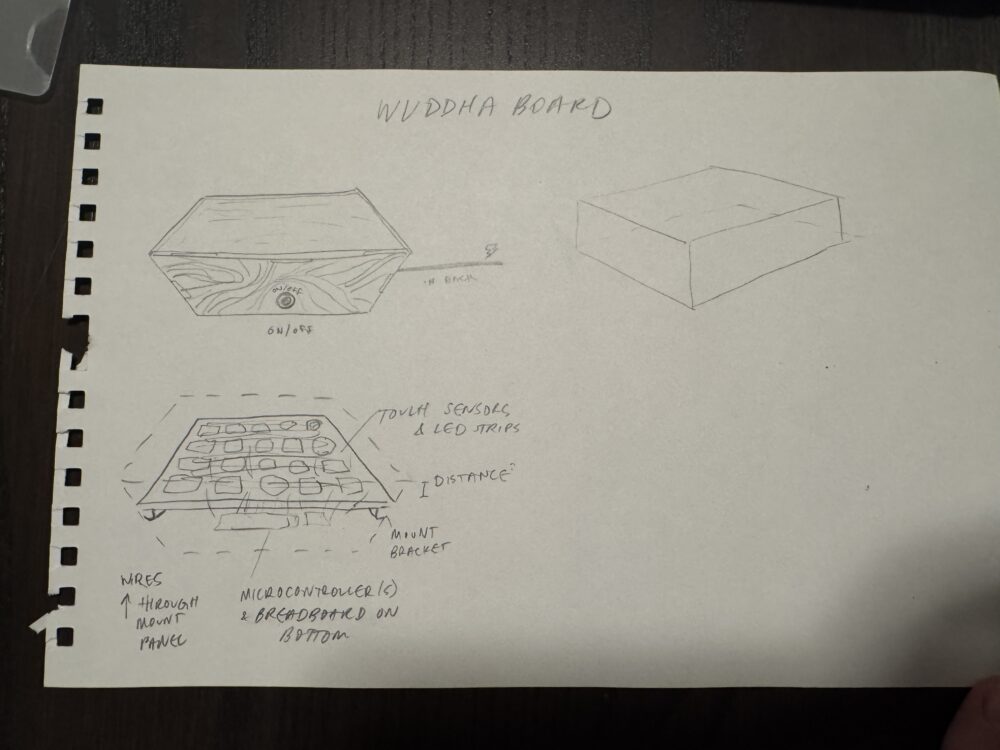 WUDDHA BOARD
ON/OFF
IN BACK
ON/OFF
TOUCH SENSORS
& LED STRIPS
DISTANCE?
MOUNT
BRACKET
WIRES
↑ THROUGH
MOUNT
PANEL
MICROCONTROLLER(S)
& BREADBOARD ON
BOTTOM